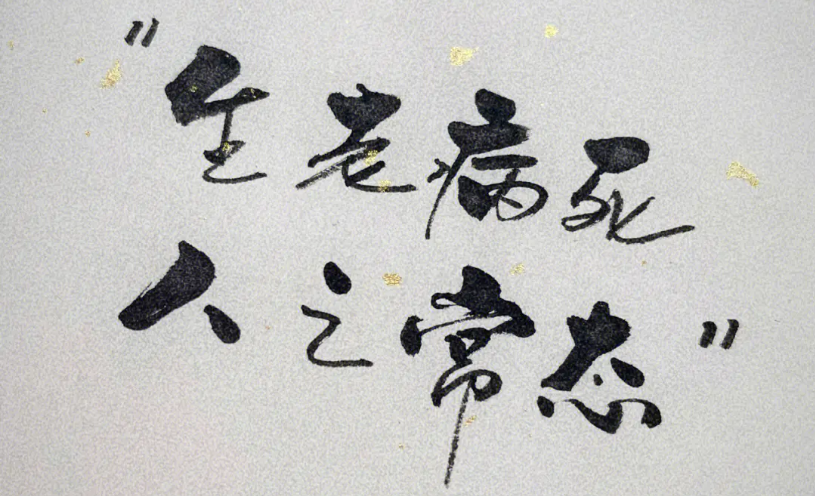 "生老病死
人之常态"